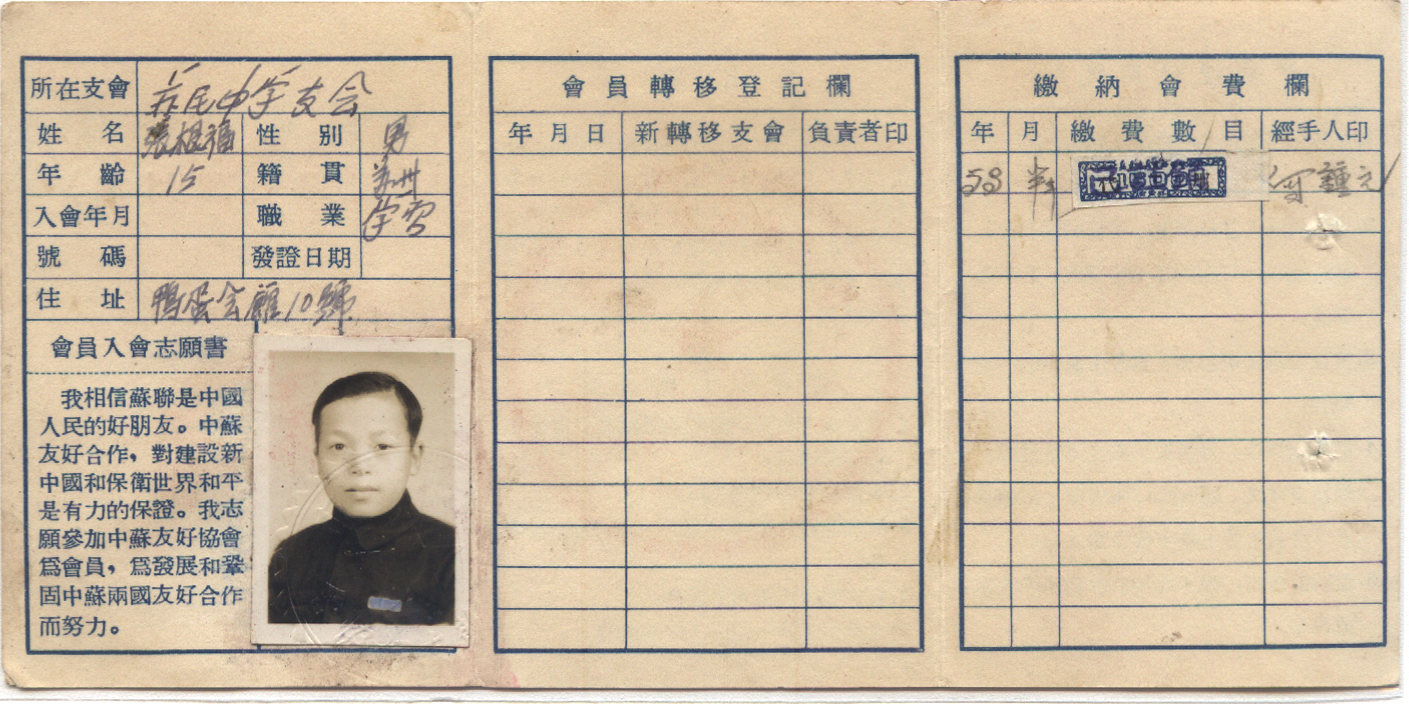 所在支會
民中学支会
姓名 張根福 性別 男
年齡 15 籍貫 苏州
入會年月 職業 学习
號碼 發證日期
住址 鴨蛋会館10號
會員入會志願書
我相信蘇聯是中國
人民的好朋友。中蘇
友好合作，對建設新
中國和保衛世界和平
是有力的保證。我志
願參加中蘇友好協會
爲會員，爲發展和鞏
固中蘇兩國友好合作
而努力。
會員轉移登記欄
年月日 新轉移支會 負責者印
繳納會費欄
年 月 繳費數目 經手人印
53